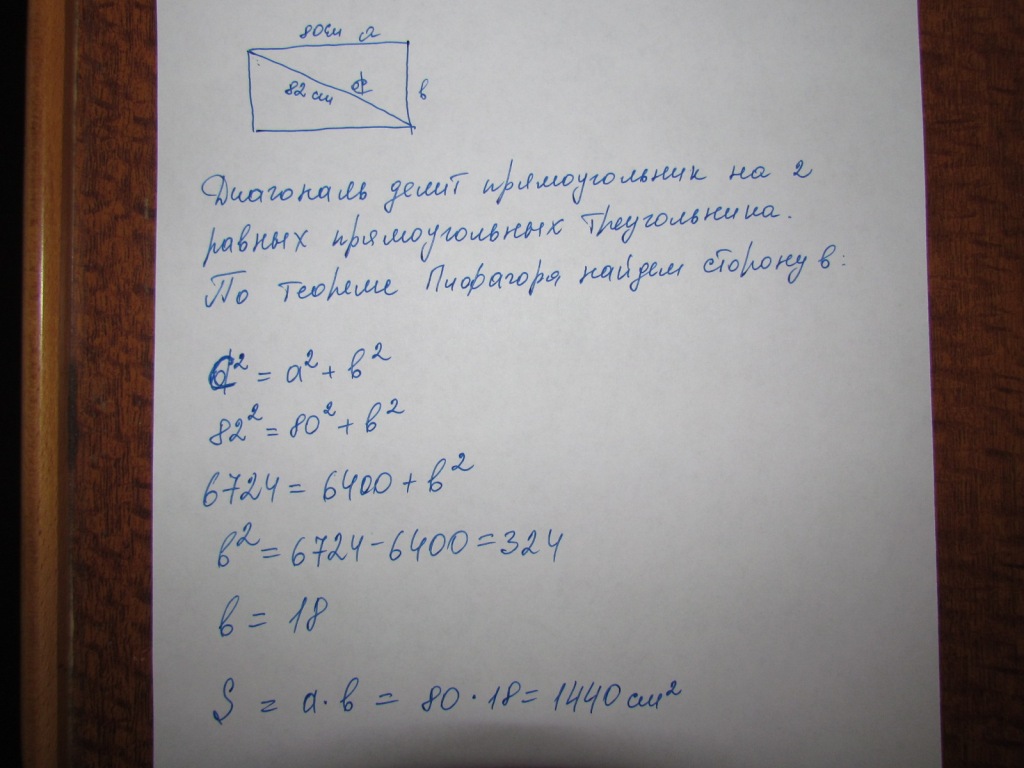 80см a
82 см d
в
Диагональ делит прямоугольник на 2
равных прямоугольных треугольника.
По теореме Пифагора найдем сторону в:
d² = a² + в²
82² = 80² + в²
6724 = 6400 + в²
в² = 6724 - 6400 = 324
в = 18
S = a · в = 80 · 18 = 1440 см²